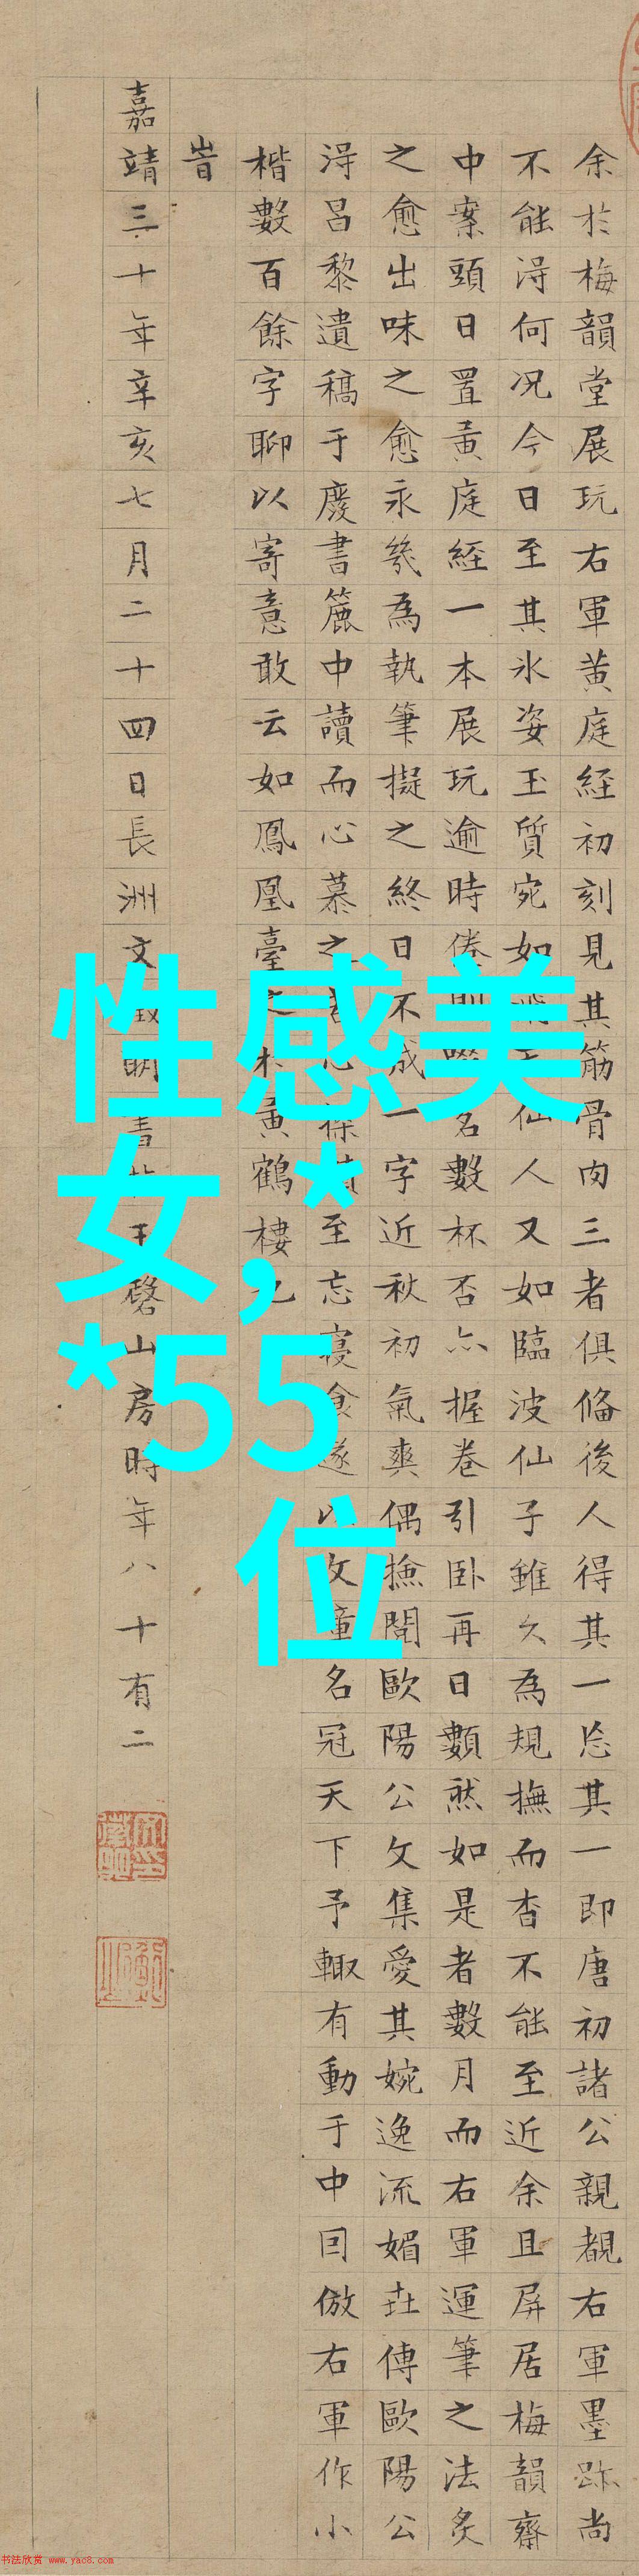 余於梅韻堂展玩右軍黃庭経初刻見其筋骨肉三者俱俻後人得其一忘其一即唐初諸公親覩右軍墨跡尚
不能淂何况今日至其氷姿玉質宛如仙人又如臨波仙子雖久為規撫而杳不能至近余且屏居梅韻齋
中案頭日置黃庭経一本展玩逾時倦則啜茗數杯否亦握卷引卧再日然如是者數月而右軍運筆之法炙
之愈出味之愈永幾為執筆擬之終日不成一字近秋初氣爽偶撿閱歐陽公文集愛其婉逸流媚世傳歐陽公
淂昌黎遺稿于廢書簏中讀而心慕之苦心探賾至忘寢食遂以文章名冠天下予輙有動于中因倣右軍作小
楷數百餘字聊以寄意敢云如鳳凰臺之於黃鶴樓也
旹
嘉靖三十年辛亥七月二十四日長洲文徵明書於玉磬山房時年八十有二
性感美
女,*
*55
位
书法欣赏 www.yac8.com